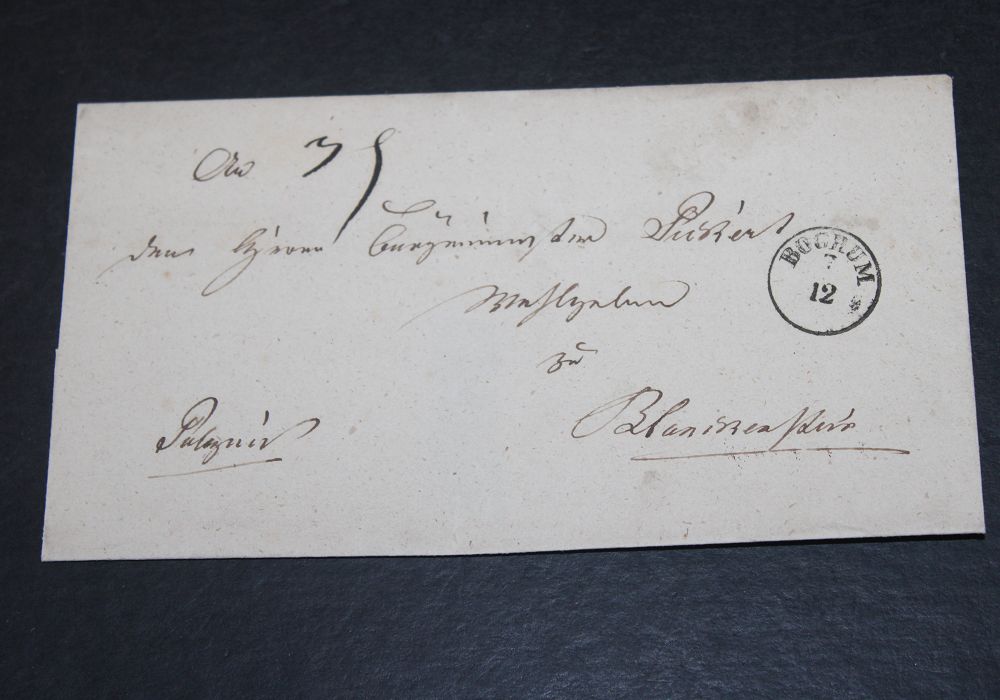 An
den Herrn Bürgermeister Pickert
Wohlgeboren
zu
Blankenstein
BOCHUM
7
12